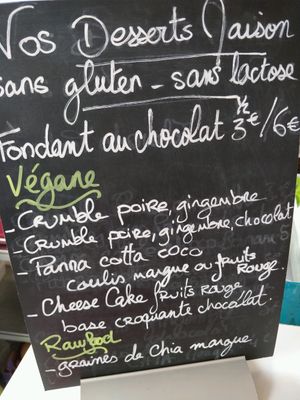 Vos Desserts Maison
sans gluten - sans lactose
Fondant au chocolat ½ 3€/6€
Végane
- Crumble poire, gingembre
- Crumble poire, gingembre, chocolat
- Panna cotta coco
coulis mangue ou fruits rouge.
- Cheese Cake fruits Rouge,
base croquante chocolat.
Rawfood
- graines de chia mangue